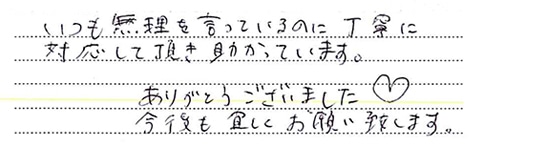 いつも無理を言っているのに丁寧に
対応して頂き助かっています。
ありがとうございました♡
今後も宜しくお願い致します。